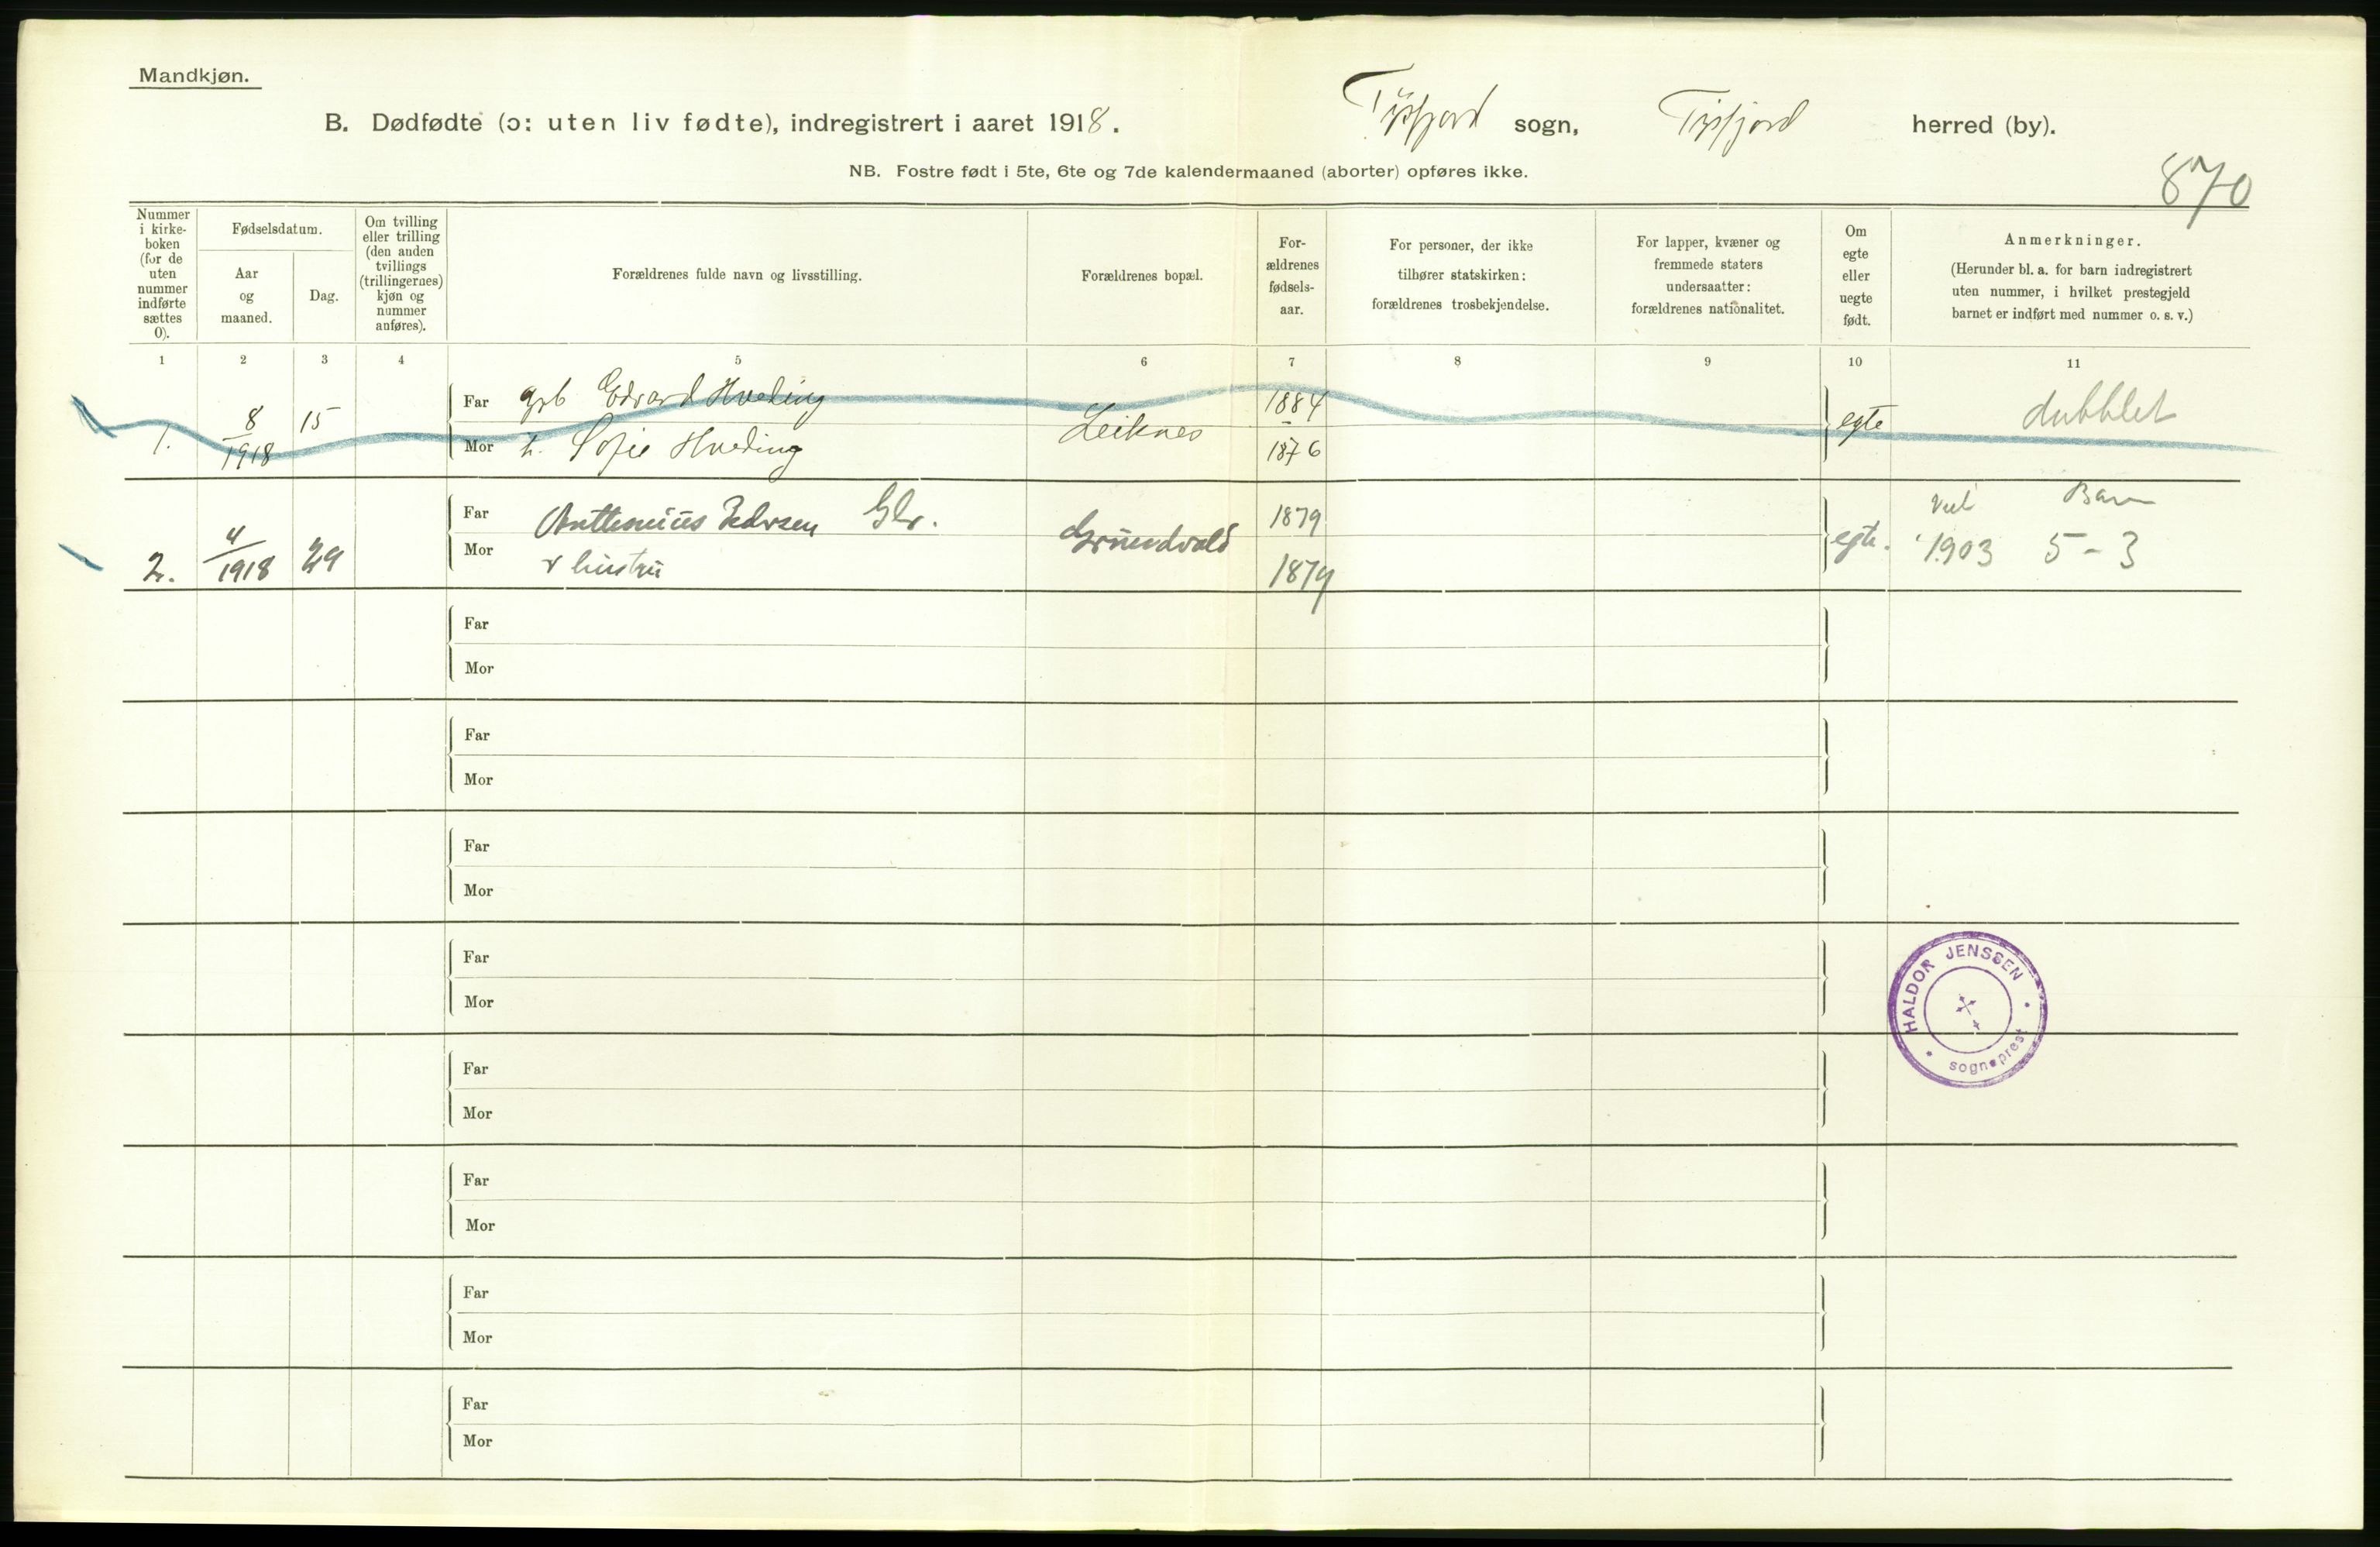 Mandkjøn.
B. Dødfødte (ɔ: uten liv fødte), indregistrert i aaret 1918. Tysfjord sogn, Tysfjord herred (by).
NB. Fostre født i 5te, 6te og 7de kalendermaaned (aborter) opføres ikke.
870
Nummer i kirke- boken (for de uten nummer indførte sættes 0).
Fødselsdatum.
Aar og maaned.
Dag.
Om tvilling eller trilling (den anden tvillings (trillingernes) kjøn og nummer anføres).
Forældrenes fulde navn og livsstilling.
Forældrenes bopæl.
For- ældrenes fødsels- aar.
For personer, der ikke tilhører statskirken: forældrenes trosbekjendelse.
For lapper, kvæner og fremmede staters undersaatter: forældrenes nationalitet.
Om egte eller uegte født.
Anmerkninger.
(Herunder bl. a. for barn indregistrert uten nummer, i hvilket prestegjeld barnet er indført med nummer o. s. v.)
1 2 3 4 5 6 7 8 9 10 11
1. 8/1918 15 Far Grb Edvard Hveding Leiknes 1884 egte dubblet
Mor h. Sofie Hveding 1876
2. 4/1918 29 Far Anthonius Pedersen Gbr. Grundvald 1879 egte. Viet Barn
Mor v hustru 1879 1903 5-3
Far
Mor
Far
Mor
Far
Mor
Far
Mor
Far
Mor
Far
Mor
Far
Mor
Far
Mor
HALDOR JENSSEN
sogneprest